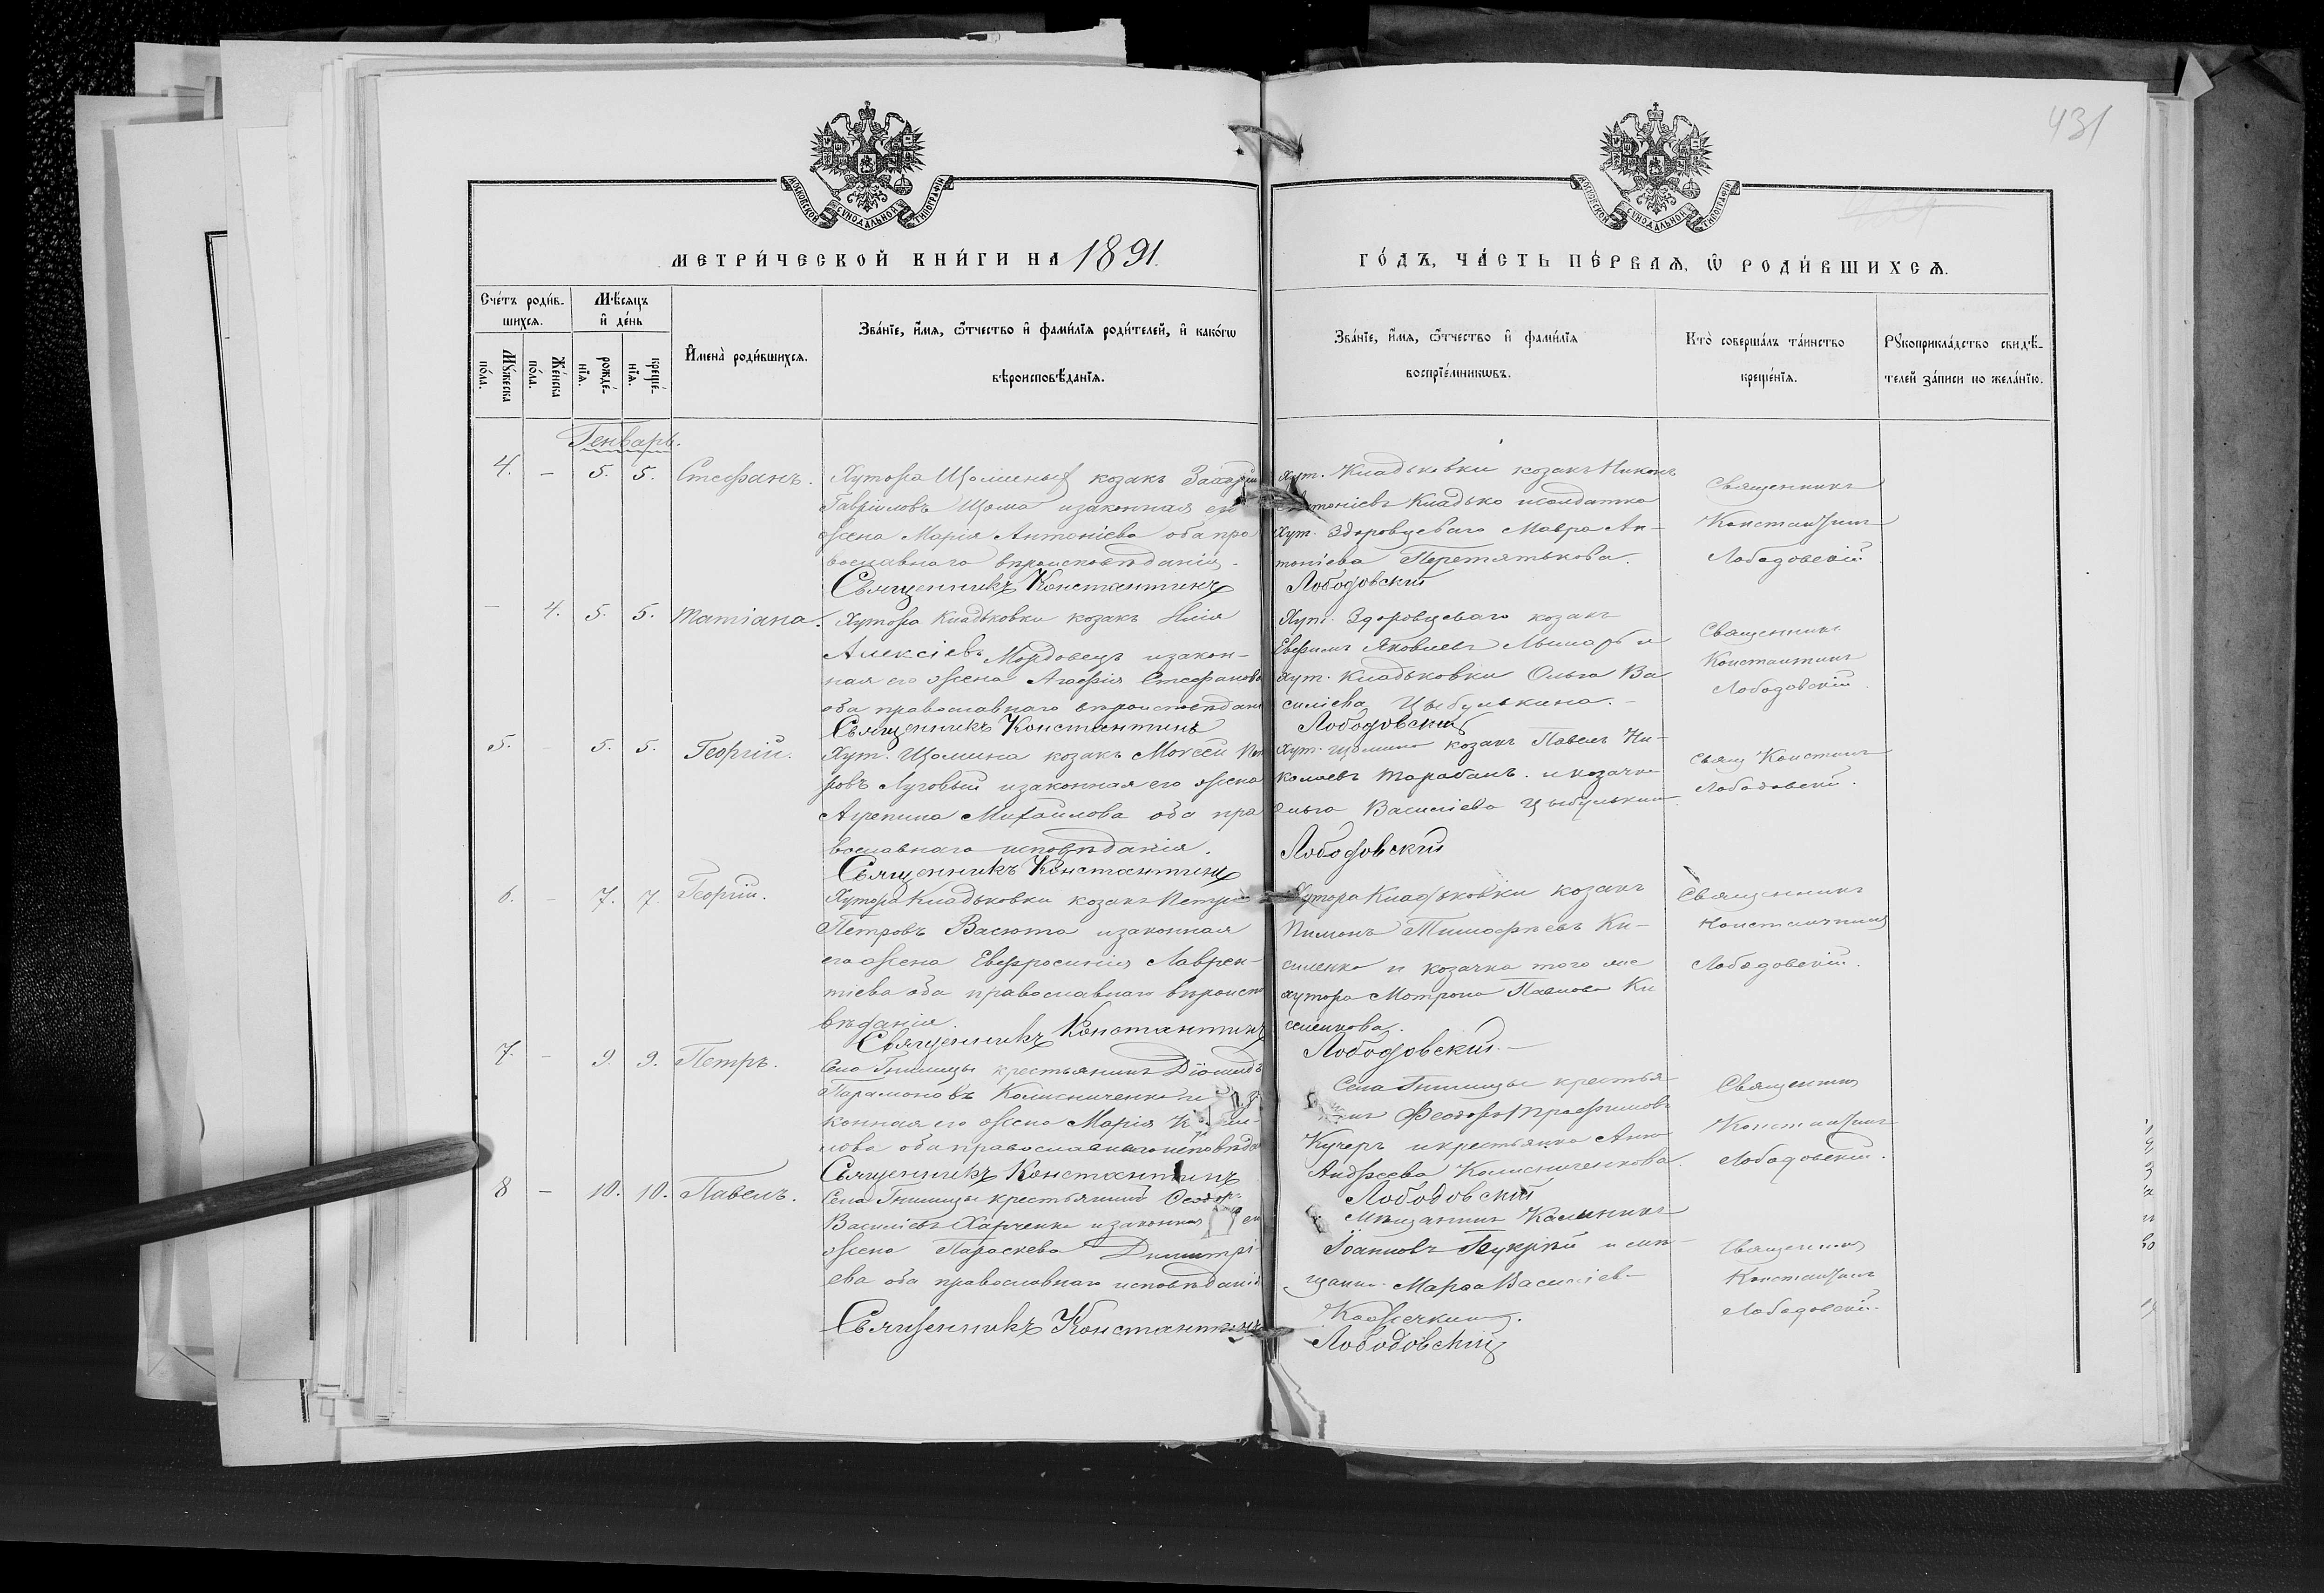 431
МОСКОВСКОЙ СѴНОДАЛЬНОЙ ТИПОГРАФІИ
МОСКОВСКОЙ СѴНОДАЛЬНОЙ ТИПОГРАФІИ
МЕТРИ́ЧЕСКОЙ КНИ́ГИ НА 1891.
ГО́ДЪ, ЧА́СТЬ ПЕ́РВАѦ, Ѿ РОДИ́ВШИХСѦ.
Сче́тъ роди́в-
шихсѧ.
Мꙋ́жеска по́ла.
Же́нска по́ла.
Мѣ́сѧцъ
и҆ де́нь
рожде́-
нїѧ.
креще́-
нїѧ.
И҆мена̀ роди́вшихсѧ.
Зва́нїе, и҆́мѧ, ѻ҆́тчество и҆ фами́лїѧ роди́телей, и҆ како́гѡ
вѣроисповѣ́данїѧ.
Зва́нїе, и҆́мѧ, ѻ҆́тчество и҆ фами́лїѧ
воспрїе́мникѡвъ.
Кто̀ соверша́лъ та́инство
креще́нїѧ.
Рꙋкоприкла́дство свидѣ́-
телей за́писи по жела́нїю.
Генварь.
4. – 5. 5. Стефанъ.
Хутора Щоминых козакъ Захарій
Гавріиловъ Щома изаконная его
жена Марія Антоніева оба пра
вославнаго вѣроисповѣданія.
Священникъ Константинъ
хут. Кладьковки козакъ Никонъ
Кладько исолдатка
хут. Здоровцеваго Мавра Ан-
тоніева Перетятькова.
Лободовскій
Священникъ
Константинъ
Лободовскій
– 4. 5. 5. Татіана.
Хутора Кладьковки козакъ Илія
Алексіевъ Мордовецъ изакон-
ная его жена Агафія Стефанова
оба православнаго вѣроисповѣдан
Священникъ Константинъ
Хут. Здоровцеваго козакъ
Евфимъ Яковлевъ Лымарь и
хут. Кладьковки Ольга Ва
силіева Цыбулькина.
Лободовскій
Священникъ
Константинъ
Лободовскій
5. – 5. 5. Георгій.
Хут. Щомина козакъ Моѵсей
ровъ Луговый изаконная его жена
Агрепина Михаилова оба пра
вославнаго исповѣданія.
Священникъ Константинъ
Хут. Щомина козакъ Павелъ Ни-
колаевъ Тарабанъ. и козачка
Ольга Василіева Цыбулькин
Лободовскій
Свящ Констант
Лободовскій.
6. – 7. 7. Георгій.
Хутора Кладьковки козакъ Петръ
Петровъ Васюта изаконная
его жена Евфросинія Лаврен-
тіева оба православнаго вѣроиспо
вѣданія.
Священникъ Константинъ
Хутора Кладьковки козакъ
Пименъ Тимофѣевъ Ки-
силенко и козачка того же
хутора Мотрона Павлова Ки
силенкова.
Лободовскій.
Священникъ
Константинъ
Лободовскій.
7. – 9. 9. Петръ.
Села Гнилицы крестьянинъ Діомидъ
Парамоновъ Колисниченко и
конная его жена Марія
лова оба православнаго исповѣдан
Священникъ Константинъ
Села Гнилицы крестья
Феодоръ Трофимовъ
Кучеръ икрестьянка Анна
Андреева Колисниченкова.
Лободовскій
Священникъ
Константинъ
Лободовскій.
8 – 10. 10. Павелъ.
Села Гнилицы крестьянинъ Ѳеодоръ
Василіевъ Харченко изаконная
жена Параскева Димитрі-
ева оба православнаго исповѣданія
Священникъ Константинъ
Мѣщанинъ Калиникъ
Іоанновъ и мѣ-
щанка Марѳа Василіев
Лободовскій
Священникъ
Константинъ
Лободовскій.